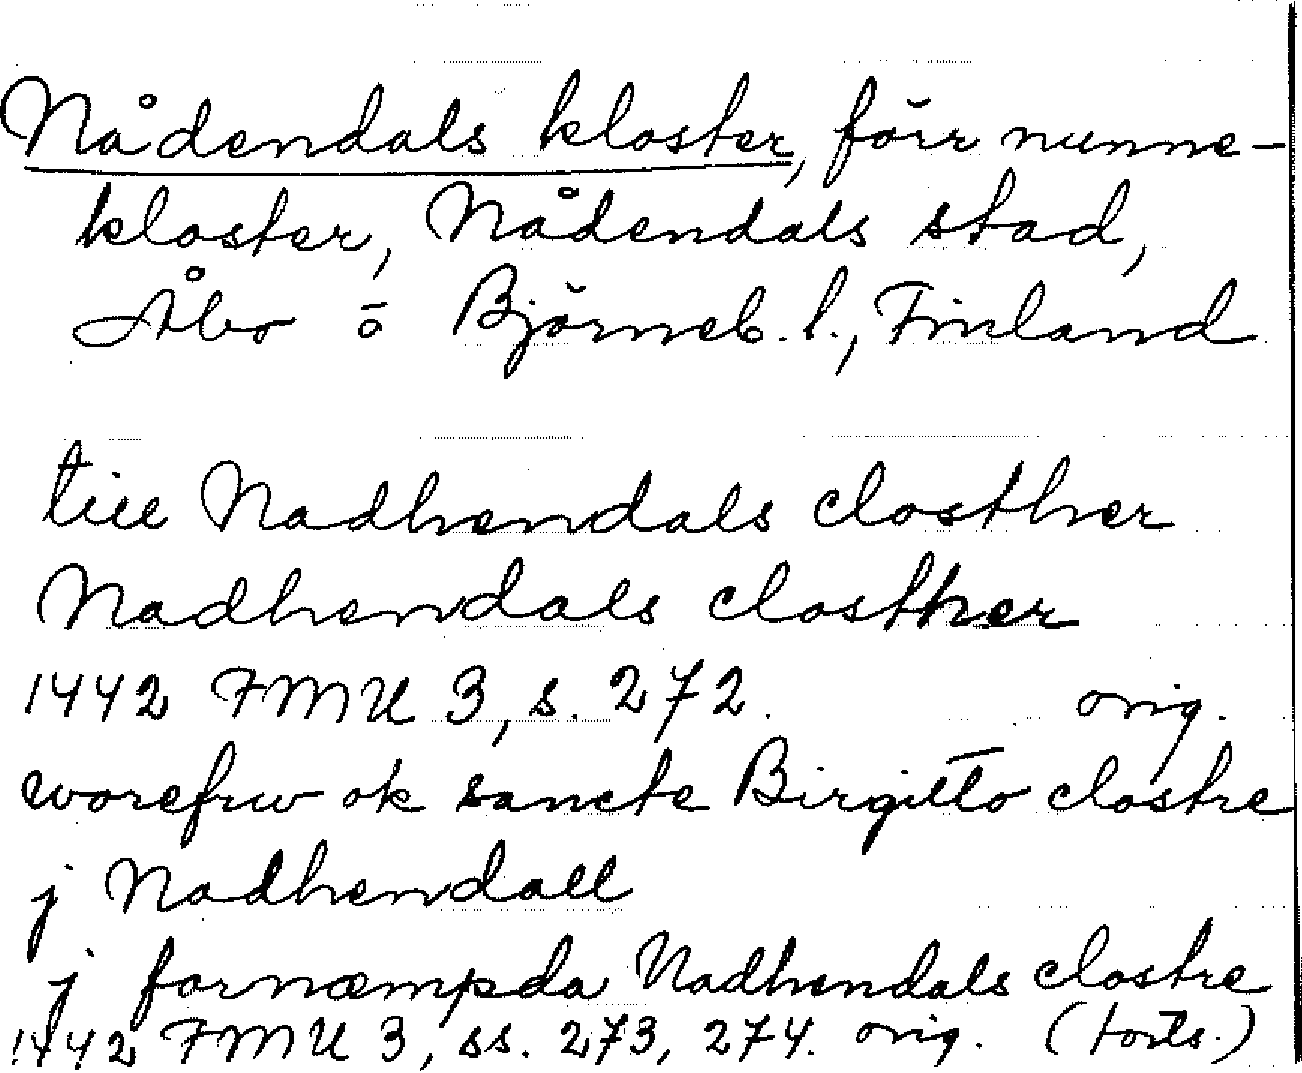 Nådendals kloster, förr nunne-
kloster, Nådendals stad,
Åbo o Björneb. l., Finland
till Nadhendals closther
Nadhendals closther
1442 FMU 3, s. 272. orig.
worefrw ok sancte Birgitto clostre
j Nadhendall
j fornæmpda Nadhendals clostre
1442 FMU 3, ss. 273, 274. orig. (forts.)